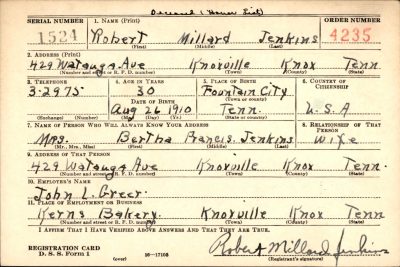 Deceased (Honor List)
SERIAL NUMBER 1. NAME (Print) ORDER NUMBER
1524 Robert Millard Jenkins 4235
(First) (Middle) (Last)
2. ADDRESS (Print)
429 Watauga Ave Knoxville Knox Tenn
(Number and street or R. F. D. number) (Town) (County) (State)
3. TELEPHONE 4. AGE IN YEARS 5. PLACE OF BIRTH 6. COUNTRY OF CITIZENSHIP
3-2975 30 Fountain City
DATE OF BIRTH (Town or county)
Aug 26 1910 Tenn. U.S.A
(Exchange) (Number) (Mo.) (Day) (Yr.) (State or country)
7. NAME OF PERSON WHO WILL ALWAYS KNOW YOUR ADDRESS 8. RELATIONSHIP OF THAT PERSON
Mrs. Bertha Francis Jenkins Wife
(Mr., Mrs., Miss) (First) (Middle) (Last)
9. ADDRESS OF THAT PERSON
429 Watauga Ave Knoxville Knox Tenn.
(Number and street or R. F. D. number) (Town) (County) (State)
10. EMPLOYER'S NAME
John L. Greer.
11. PLACE OF EMPLOYMENT OR BUSINESS
Kerns Bakery. Knoxville Knox Tenn
(Number and street or R. F. D. number) (Town) (County) (State)
I AFFIRM THAT I HAVE VERIFIED ABOVE ANSWERS AND THAT THEY ARE TRUE.
Robert Millard Jenkins
REGISTRATION CARD
D. S. S. Form 1 16—17105 (over) (Registrant's signature)